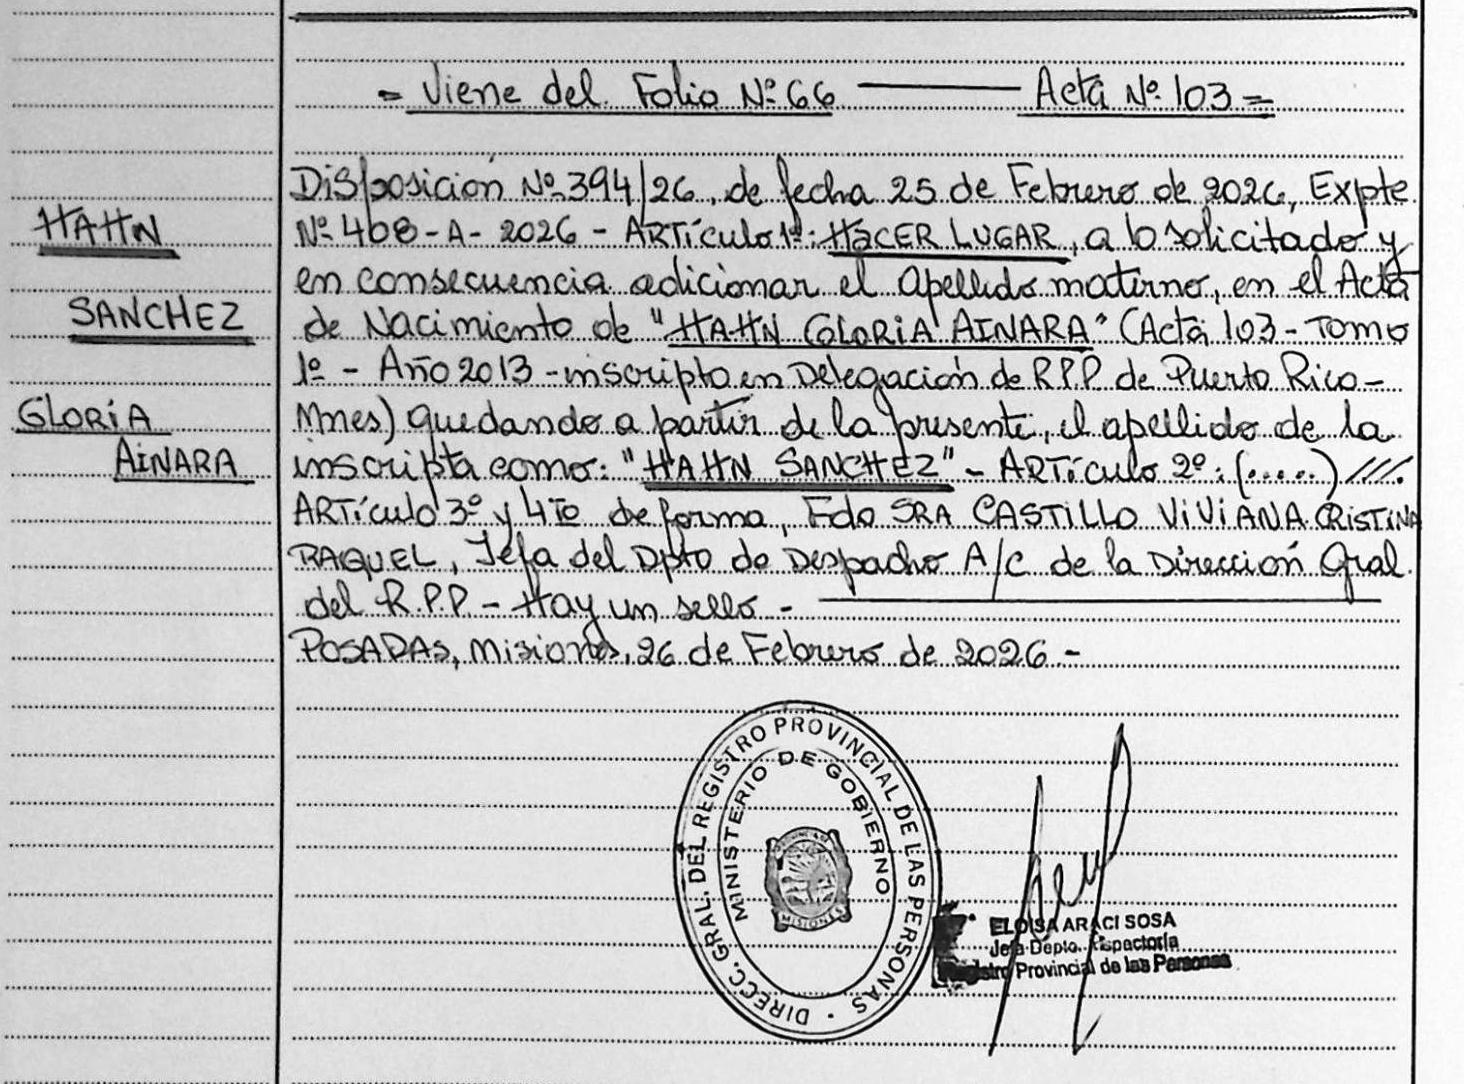 = Viene del Folio Nº 66 ——— Acta Nº 103 =
HAHN
SANCHEZ
GLORIA
AINARA
Disposición Nº 394/26, de fecha 25 de Febrero de 2026, Expte
Nº 468-A- 2026 - ARTículo 1º: HACER LUGAR, a lo solicitado y
en consecuencia adicionar el apellido materno, en el Acta
de Nacimiento de "HAHN GLORIA AINARA" (Acta 103 - Tomo
1º - Año 2013 - inscripto en Delegación de RPP de Puerto Rico -
Mnes) quedando a partir de la presente, el apellido de la
inscripta como: "HAHN SANCHEZ" - ARTículo 2º: (.....) ///.
ARTículo 3º y 4to de forma, Fdo SRA CASTILLO VIVIANA CRISTINA
RAQUEL, Jefa del Dpto de Despacho A/C de la Dirección Gral
del R.P.P - Hay un sello -
POSADAS, Misiones, 26 de Febrero de 2026 -
DIRECC. GRAL. DEL REGISTRO PROVINCIAL DE LAS PERSONAS
MINISTERIO DE GOBIERNO
MISIONES
ELOISA ARACI SOSA
Jefa Depto. Inspectoría
Registro Provincial de las Personas